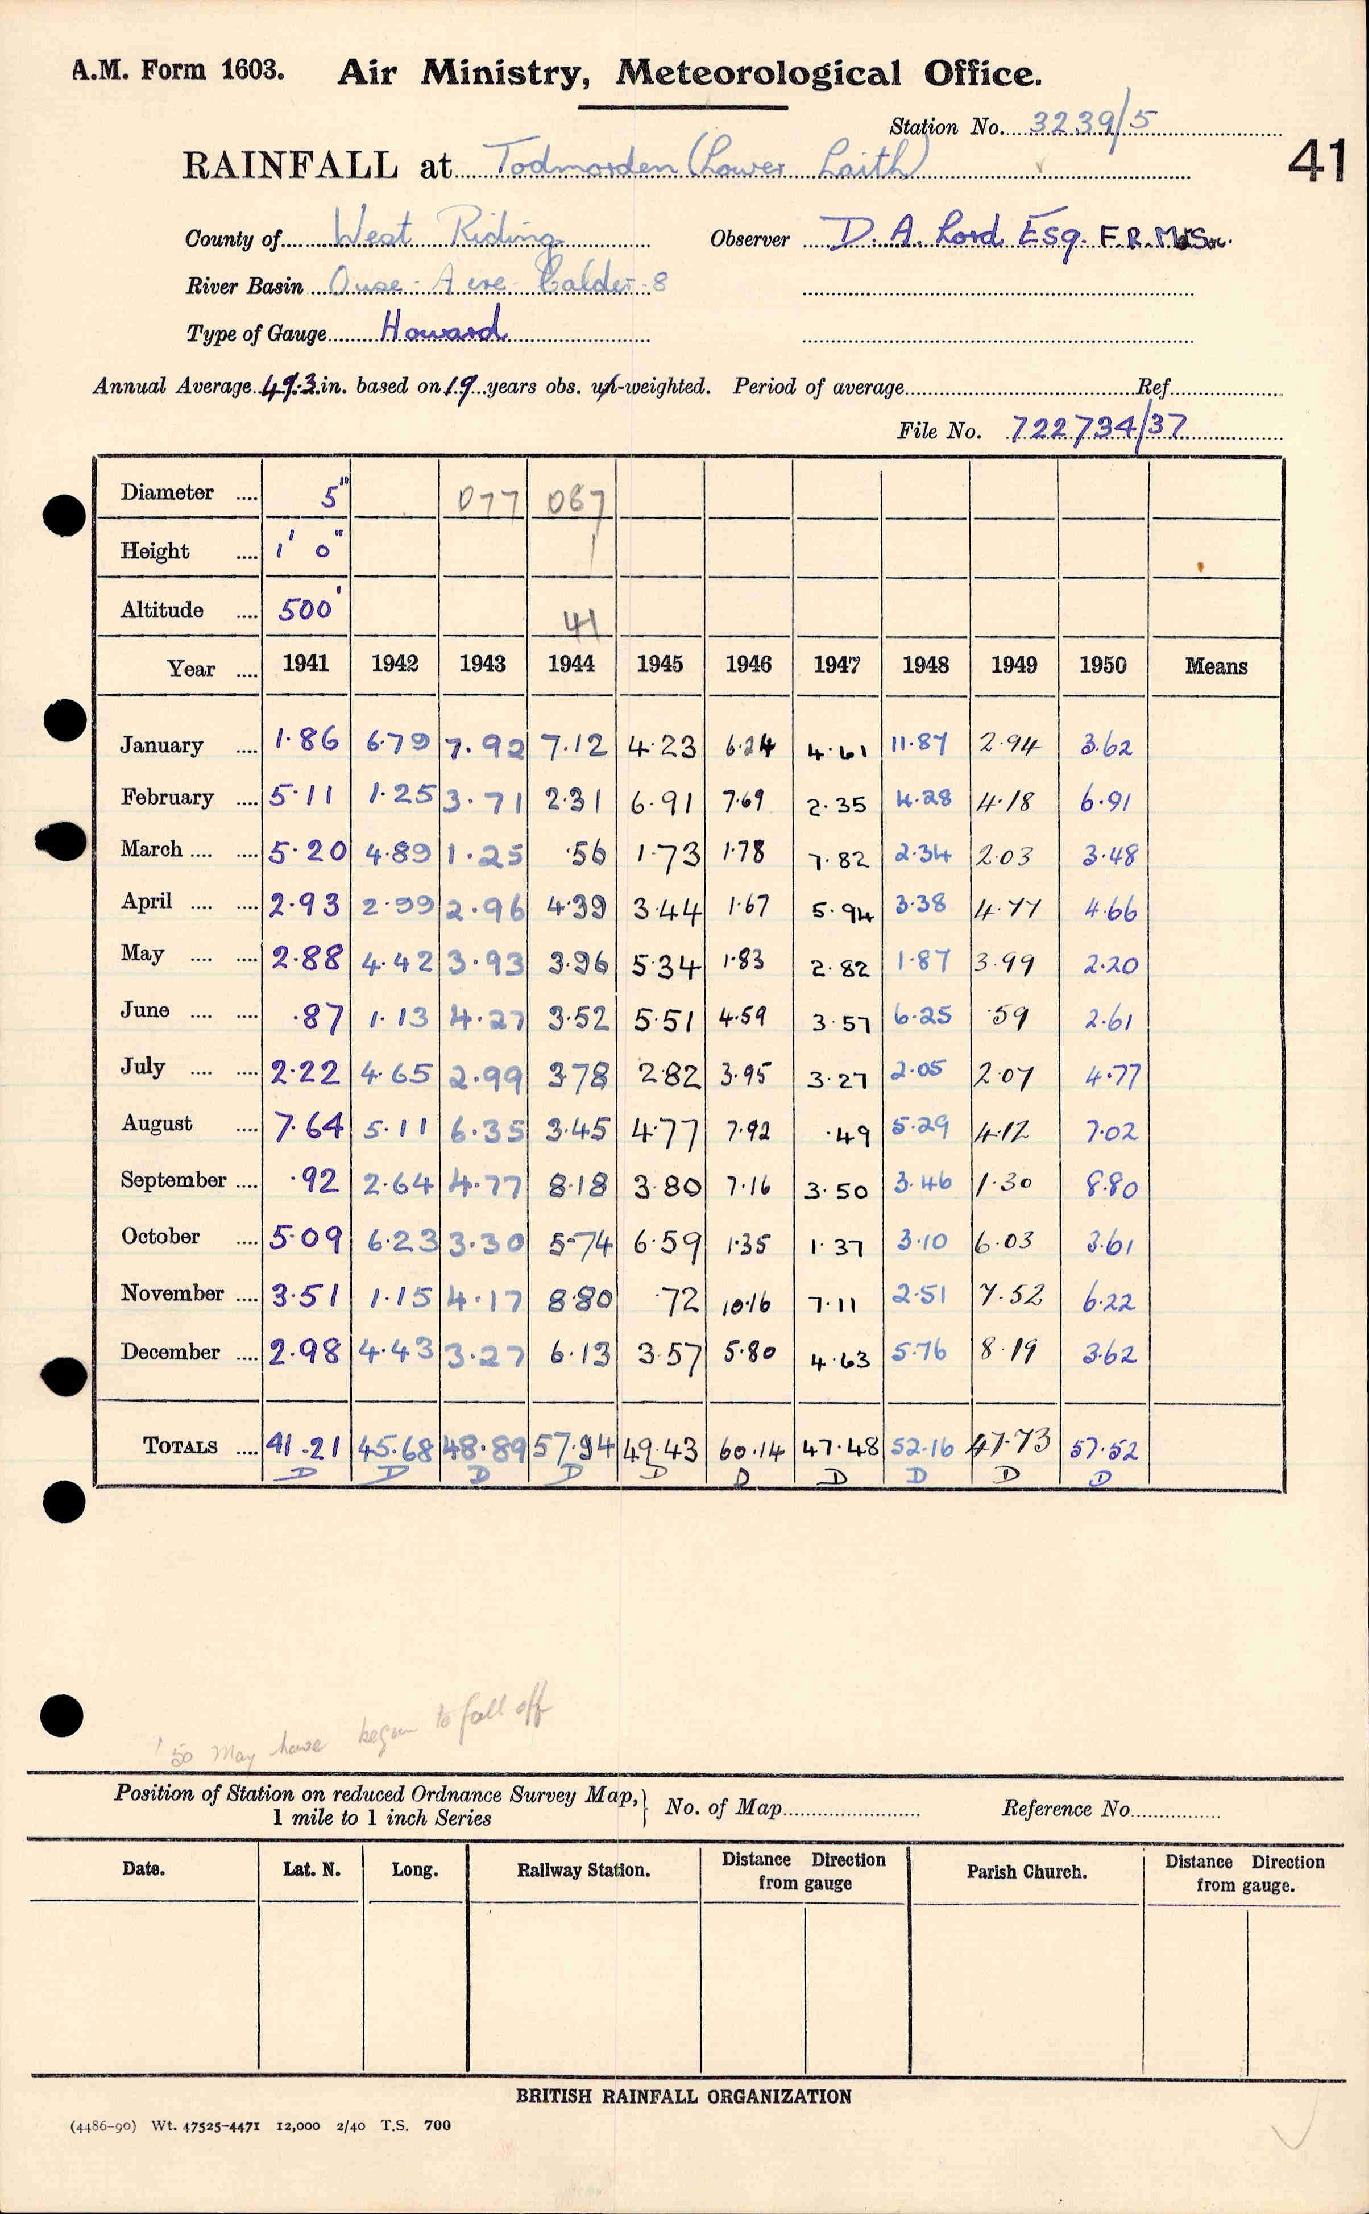 A.M. Form 1603. Air Ministry, Meteorological Office.
Station No. 3239/5
RAINFALL at Todmorden (Lower Laith) 41
County of West Riding Observer D. A. Lord Esq. F.R.Met.Soc.
River Basin Ouse - Aire - Calder - 8
Type of Gauge Howard
Annual Average 49.3 in. based on 19 years obs. un-weighted. Period of average Ref
File No. 722734/37
Diameter .... 5" 077 087
Height .... 1' 0"
Altitude .... 500' 41
Year .... 1941 1942 1943 1944 1945 1946 1947 1948 1949 1950 Means
January .... 1.86 6.79 7.92 7.12 4.23 6.24 4.61 11.87 2.94 3.62
February .... 5.11 1.25 3.71 2.31 6.91 7.69 2.35 4.28 4.18 6.91
March .... .... 5.20 4.89 1.25 .56 1.73 1.78 7.82 2.34 2.03 3.48
April .... .... 2.93 2.99 2.96 4.39 3.44 1.67 5.94 3.38 4.77 4.66
May .... .... 2.88 4.42 3.93 3.96 5.34 1.83 2.82 1.87 3.99 2.20
June .... .... .87 1.13 4.27 3.52 5.51 4.59 3.57 6.25 .59 2.61
July .... .... 2.22 4.65 2.99 3.78 2.82 3.95 3.27 2.05 2.07 4.77
August .... 7.64 5.11 6.35 3.45 4.77 7.92 .49 5.29 4.12 7.02
September .... .92 2.64 4.77 8.18 3.80 7.16 3.50 3.46 1.30 8.80
October .... 5.09 6.23 3.30 5.74 6.59 1.35 1.37 3.10 6.03 3.61
November .... 3.51 1.15 4.17 8.80 .72 10.16 7.11 2.51 7.52 6.22
December .... 2.98 4.43 3.27 6.13 3.57 5.80 4.63 5.76 8.19 3.62
TOTALS .... 41.21 45.68 48.89 57.94 49.43 60.14 47.48 52.16 47.73 57.52
D D D D D D D D D D
'50 may have begun to fall off
Position of Station on reduced Ordnance Survey Map, } No. of Map Reference No.
1 mile to 1 inch Series
Date. Lat. N. Long. Railway Station. Distance Direction from gauge Parish Church. Distance Direction from gauge.
BRITISH RAINFALL ORGANIZATION
(4486-90) Wt. 47525-4471 12,000 2/40 T.S. 700